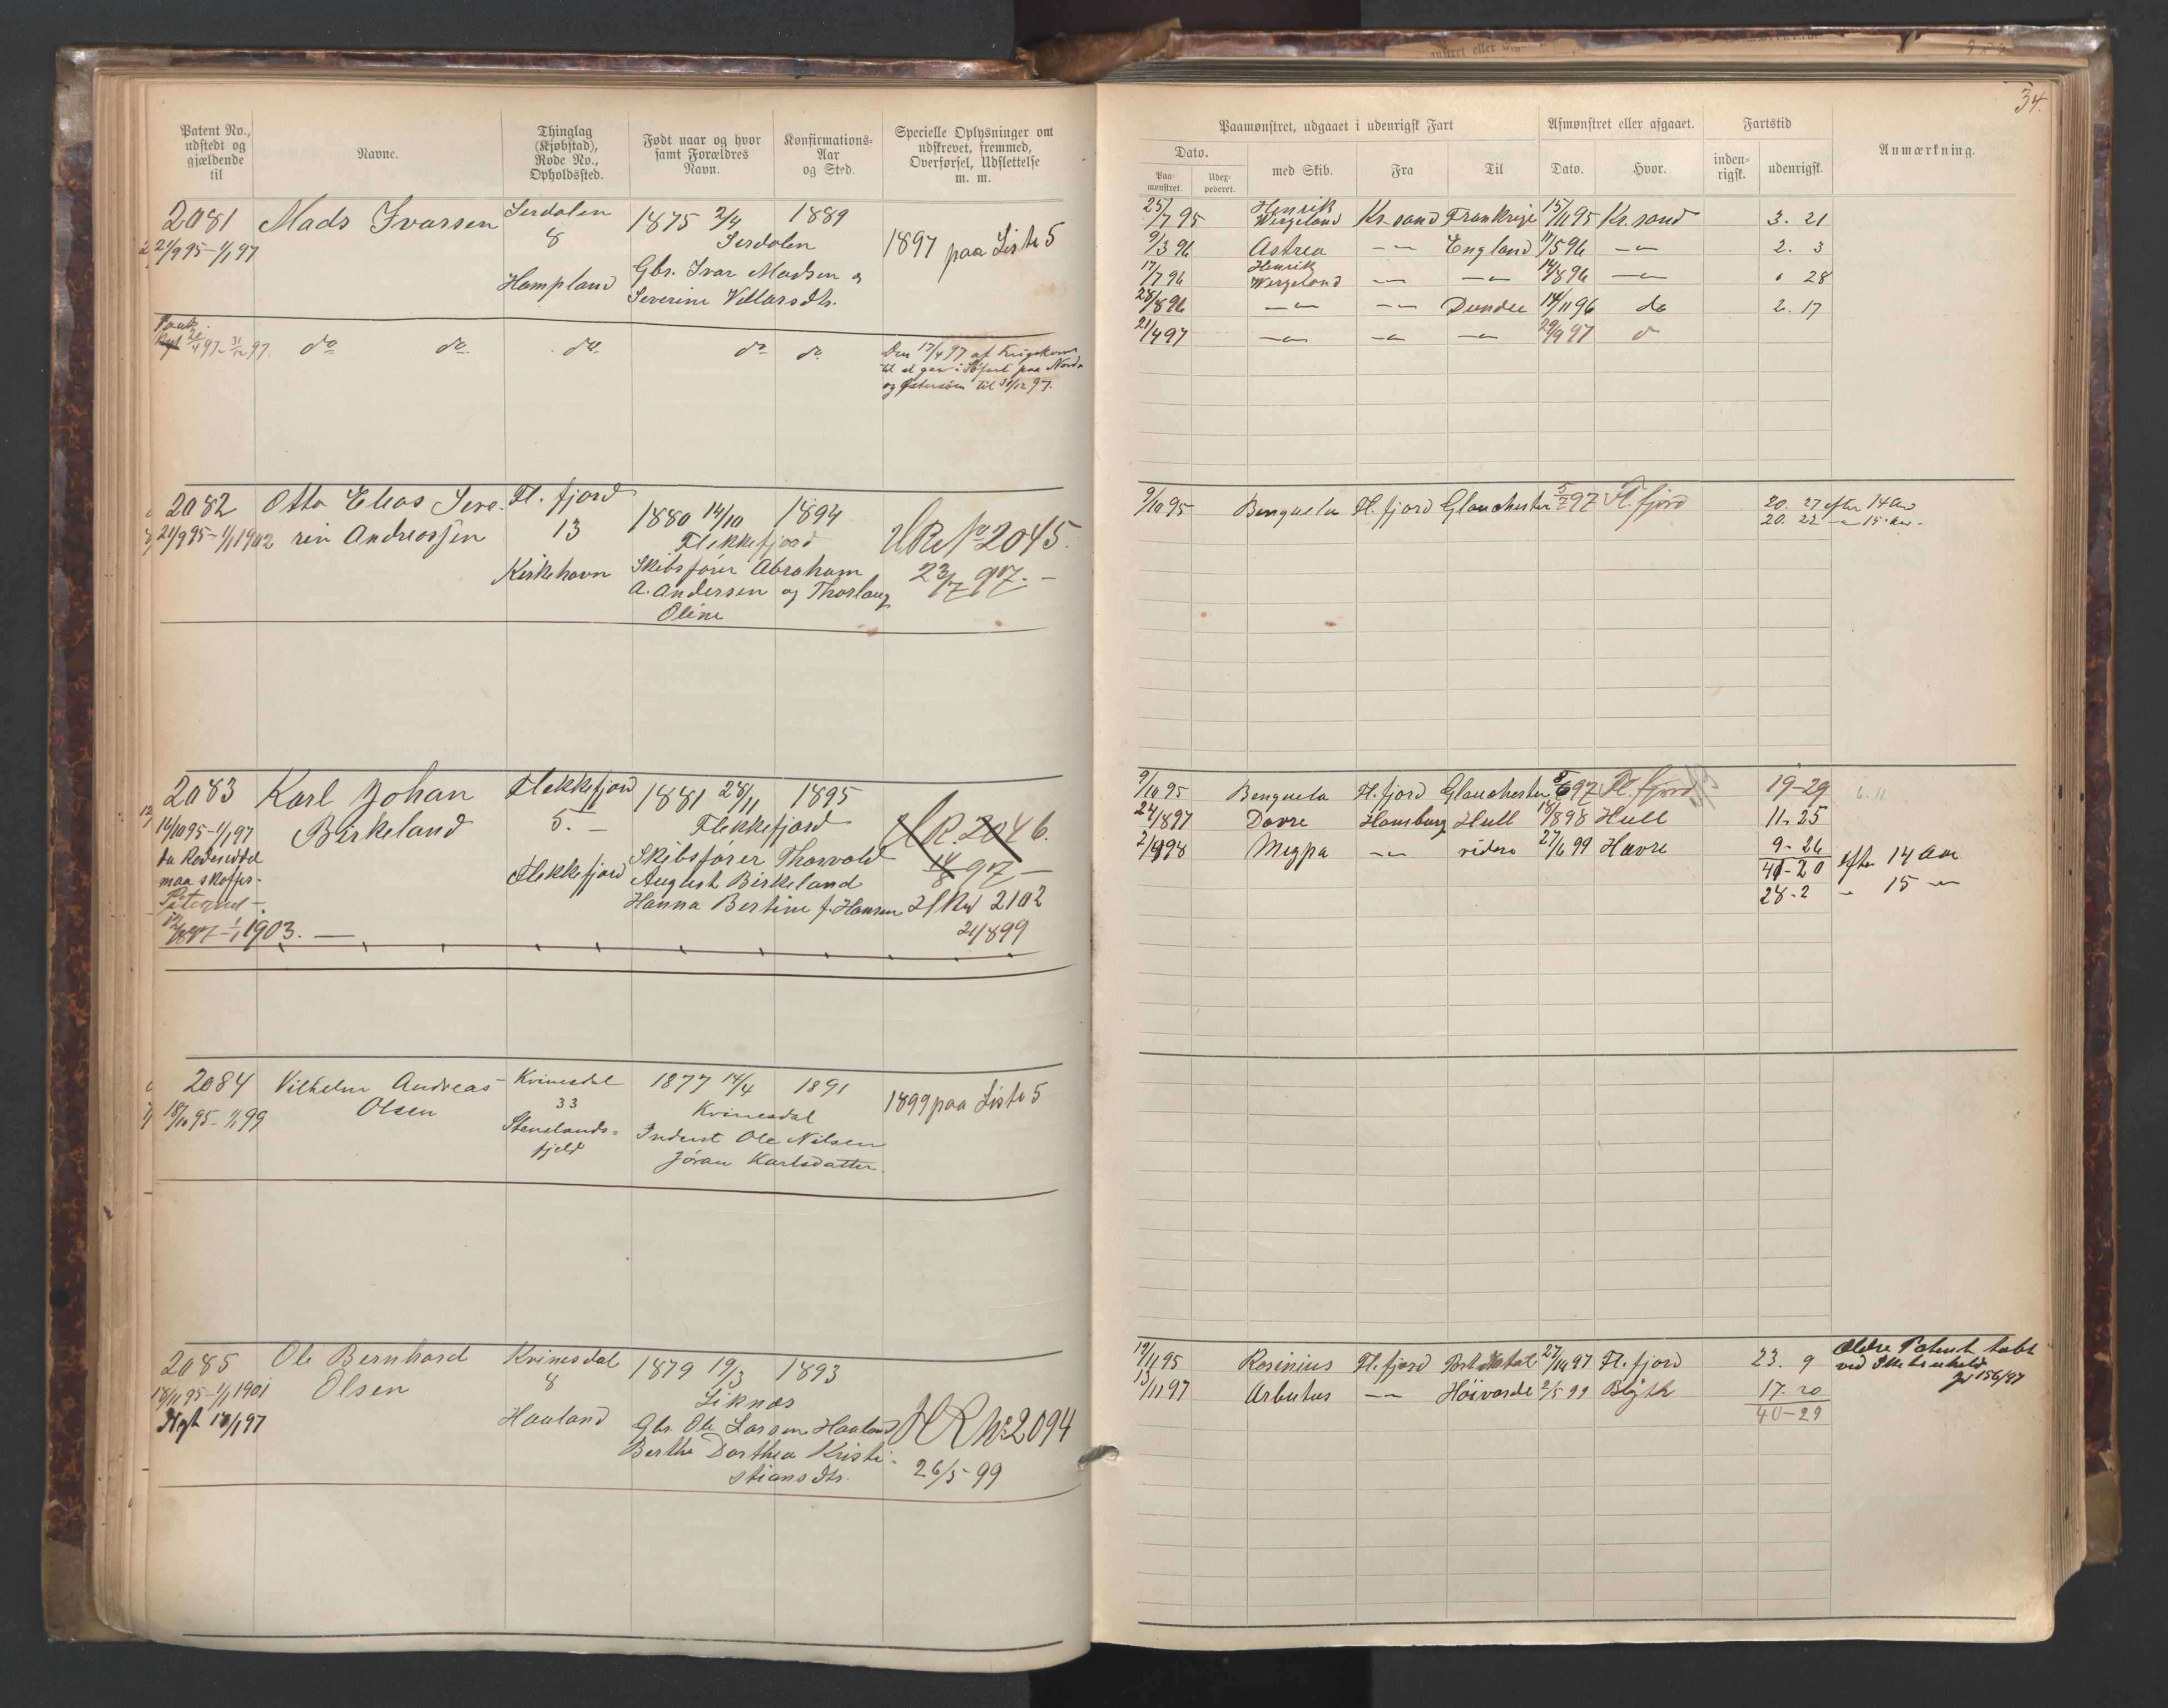 34.
Patent No., udstedt og gjældende til
Navne.
Thinglag (Kjøbstad), Rode No., Opholdssted.
Født naar og hvor samt Forældres Navn.
Konfirmations-Aar og Sted.
Specielle Oplysninger om udskrevet, fremmed, Overførsel, Udslettelse m. m.
Paamønstret, udgaaet i udenrigsk Fart
Afmønstret eller afgaaet.
Fartstid
Anmærkning.
Dato.
Paa-mønstret.
Udex-pederet.
med Skib.
Fra
Til
Dato.
Hvor.
inden-rigsk.
udenrigsk.
2081 Mads Ivarsen Sirdalen 1875 2/4 1889
21/9 95 - 1/1 97 8 Sirdalen 1897 paa Liste 5
Hompland Gbr. Ivar Madsen og
Severine Villarsdtr.
25/7 95 Henrik Wergeland Kr.sand Frankrige 15/11 95 Kr.sand 3. 21
9/3 96 Astrea —"— England 11/5 96 —"— 2. 3
17/7 96 Henrik Wergeland —"— —"— 14/8 96 —"— " 28
28/8 96 —"— —"— Dundee 14/11 96 do 2. 17
21/4 97 —"— —"— —"— 29/9 97
97 - 31/12 97. do do. do. do do. Den 17/4 97 af Krigskom
til at gaa i Söfart paa Nord-
og Østersøen til 31/12 97.
2082 Otto Elias Seve- Fl.fjord 1880 14/10 1894
21/9 95 - 1/1 1902 rin Andreassen 13 Flekkefjord HR No 2045.
Kirkehavn Skibsfører Abraham 23/7 97. —
A. Andersen og Thorlaug
Oline
9/10 95 Benguela Fl.fjord Glouchester 5/7 97 Fl.fjord 20. 27 efter 14 Aar
20. 22 —"— 15. Aar.
2083 Karl Johan Flekkefjord 1881 28/11 1895
14/10 95 - 1/1 97 Birkeland 5. — Flekkefjord HR. 2046.
da Rodeseddel Skibsfører Thorvald 14/8 97 —
maa skaffes. Flekkefjord August Birkeland
Hanna Bertine f. Hansen HR No 2102
1/1 1903. — 21/8 99
9/10 95 Benguela Fl.fjord Glouchester 5/6 97 Fl.fjord 19-29 6.11
24/8 97 Dovre Hamburg Hull 18/8 98 Hull 11. 25
2/9 98 —"— videre 27/6 99 Havre 9- 26
41-20 efter 14 Aar
28-2 — 15 —"—
2084 Vilhelm Andreas Kvinesdal 1877 14/4 1891
18/10 95 - 1/1 99 Olsen 33 Kvinesdal 1899 paa Liste 5
Stenslands= Inderst Ole Nilsen
fjeld Jöran Karlsdatter.
2085 Ole Bernhard Kvinesdal 1879 19/3 1893
18/11 95 - 1/1 1901 Olsen 8 Liknes
Nyt 18/1 97 Haaland Gbr. Ole Larsen Haaland HR No 2094
Berthe Dorthea Kristi- 26/5 99
stiansdtr.
19/11 95 Rosinius Fl.fjord Port Natal 27/10 97 Fl.fjord 23. 9 Ældre Patent tabt
ved Skibsuheld
13/11 97 Arbutus —"— Höivarde 2/5 99 Blyth 17. 20
40-29